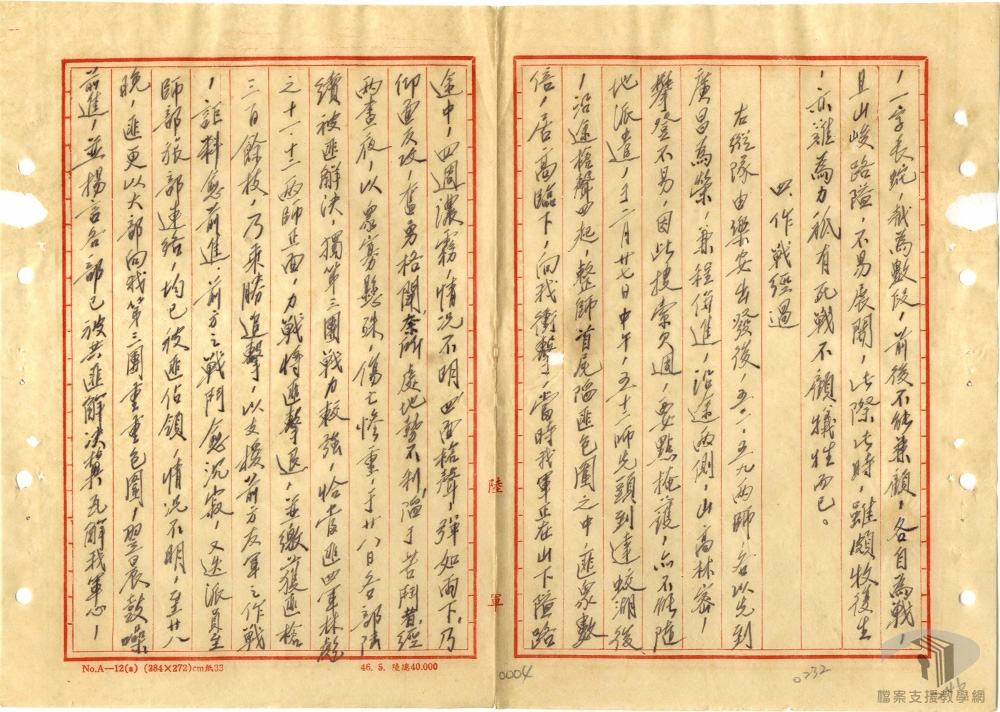 ，一字長蛇，截為數段，前後不能兼顧，各自為戰，
且山峻路隘，不易展開，此際此時，雖頗牧復生
，亦難為力祇有死戰不顧犧牲而已。
四、作戰經過
右縱隊由樂安出發後，五二、五九兩師，各以先到
廣昌為榮，兼程併進，沿途兩側，山高林密，
攀登不易，因此搜索欠週，要點掩護，亦不能隨
地派遣，于二月廿七日中午，五十二師先頭到達蛟湖後
，沿途槍聲四起，整師首尾陷匪包圍之中匪眾數
倍，居高臨下，向我衝擊，當時我軍正在山下隘路
途中，四週濃霧，情況不明，四面槍聲，彈如雨下，乃
仰面反攻，奮勇格鬪，奈所處地勢不利，陷于苦鬥者，經
兩晝夜，以眾寡懸殊，傷亡慘重，于廿八日各部陸
續被匪解決，獨第三團戰力較強，恰當匪四軍林彪
之十一、十二兩師正面，力戰將匪擊退，並繳獲匪槍
三百餘枝，乃乘勝追擊，以支援前方友軍之作戰
，詎料愈前進，前方之戰鬥愈沉寂，又迭派員至
師部旅部連絡，均已被匪佔領，情況不明，至廿八
晚，匪更以大部向我第三團重重包圍，翌晨鼓噪
前進，並揚言各部已被共匪解決冀瓦解我軍心，
陸
軍
No.A—12(a) (284×272)cm紙33
46. 5. 陸總40.000
0004
0232
檔案支援教學網